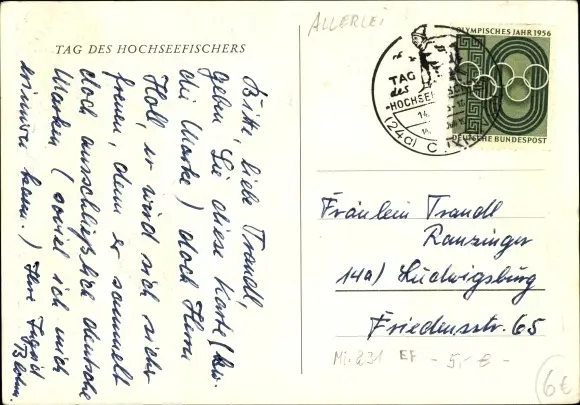 TAG DES HOCHSEEFISCHERS
Bitte, liebe Traudl,
geben Sie diese Karte (bzw.
die Marke) doch Herrn
Holl, er wird sich sicher
freuen, denn er sammelt
doch ausschließlich deutsche
Marken (soviel ich mich
erinnern kann.) Ihre Ingrid
ALLERLEI
OLYMPISCHES JAHR 1956
DEUTSCHE BUNDESPOST
TAG
des
HOCHSEE
(24a) C
Fräulein Traudl
Ranzinger
14a) Ludwigsburg
Friedensstr. 65
Mi. 231 EF - 5,- € -
6€